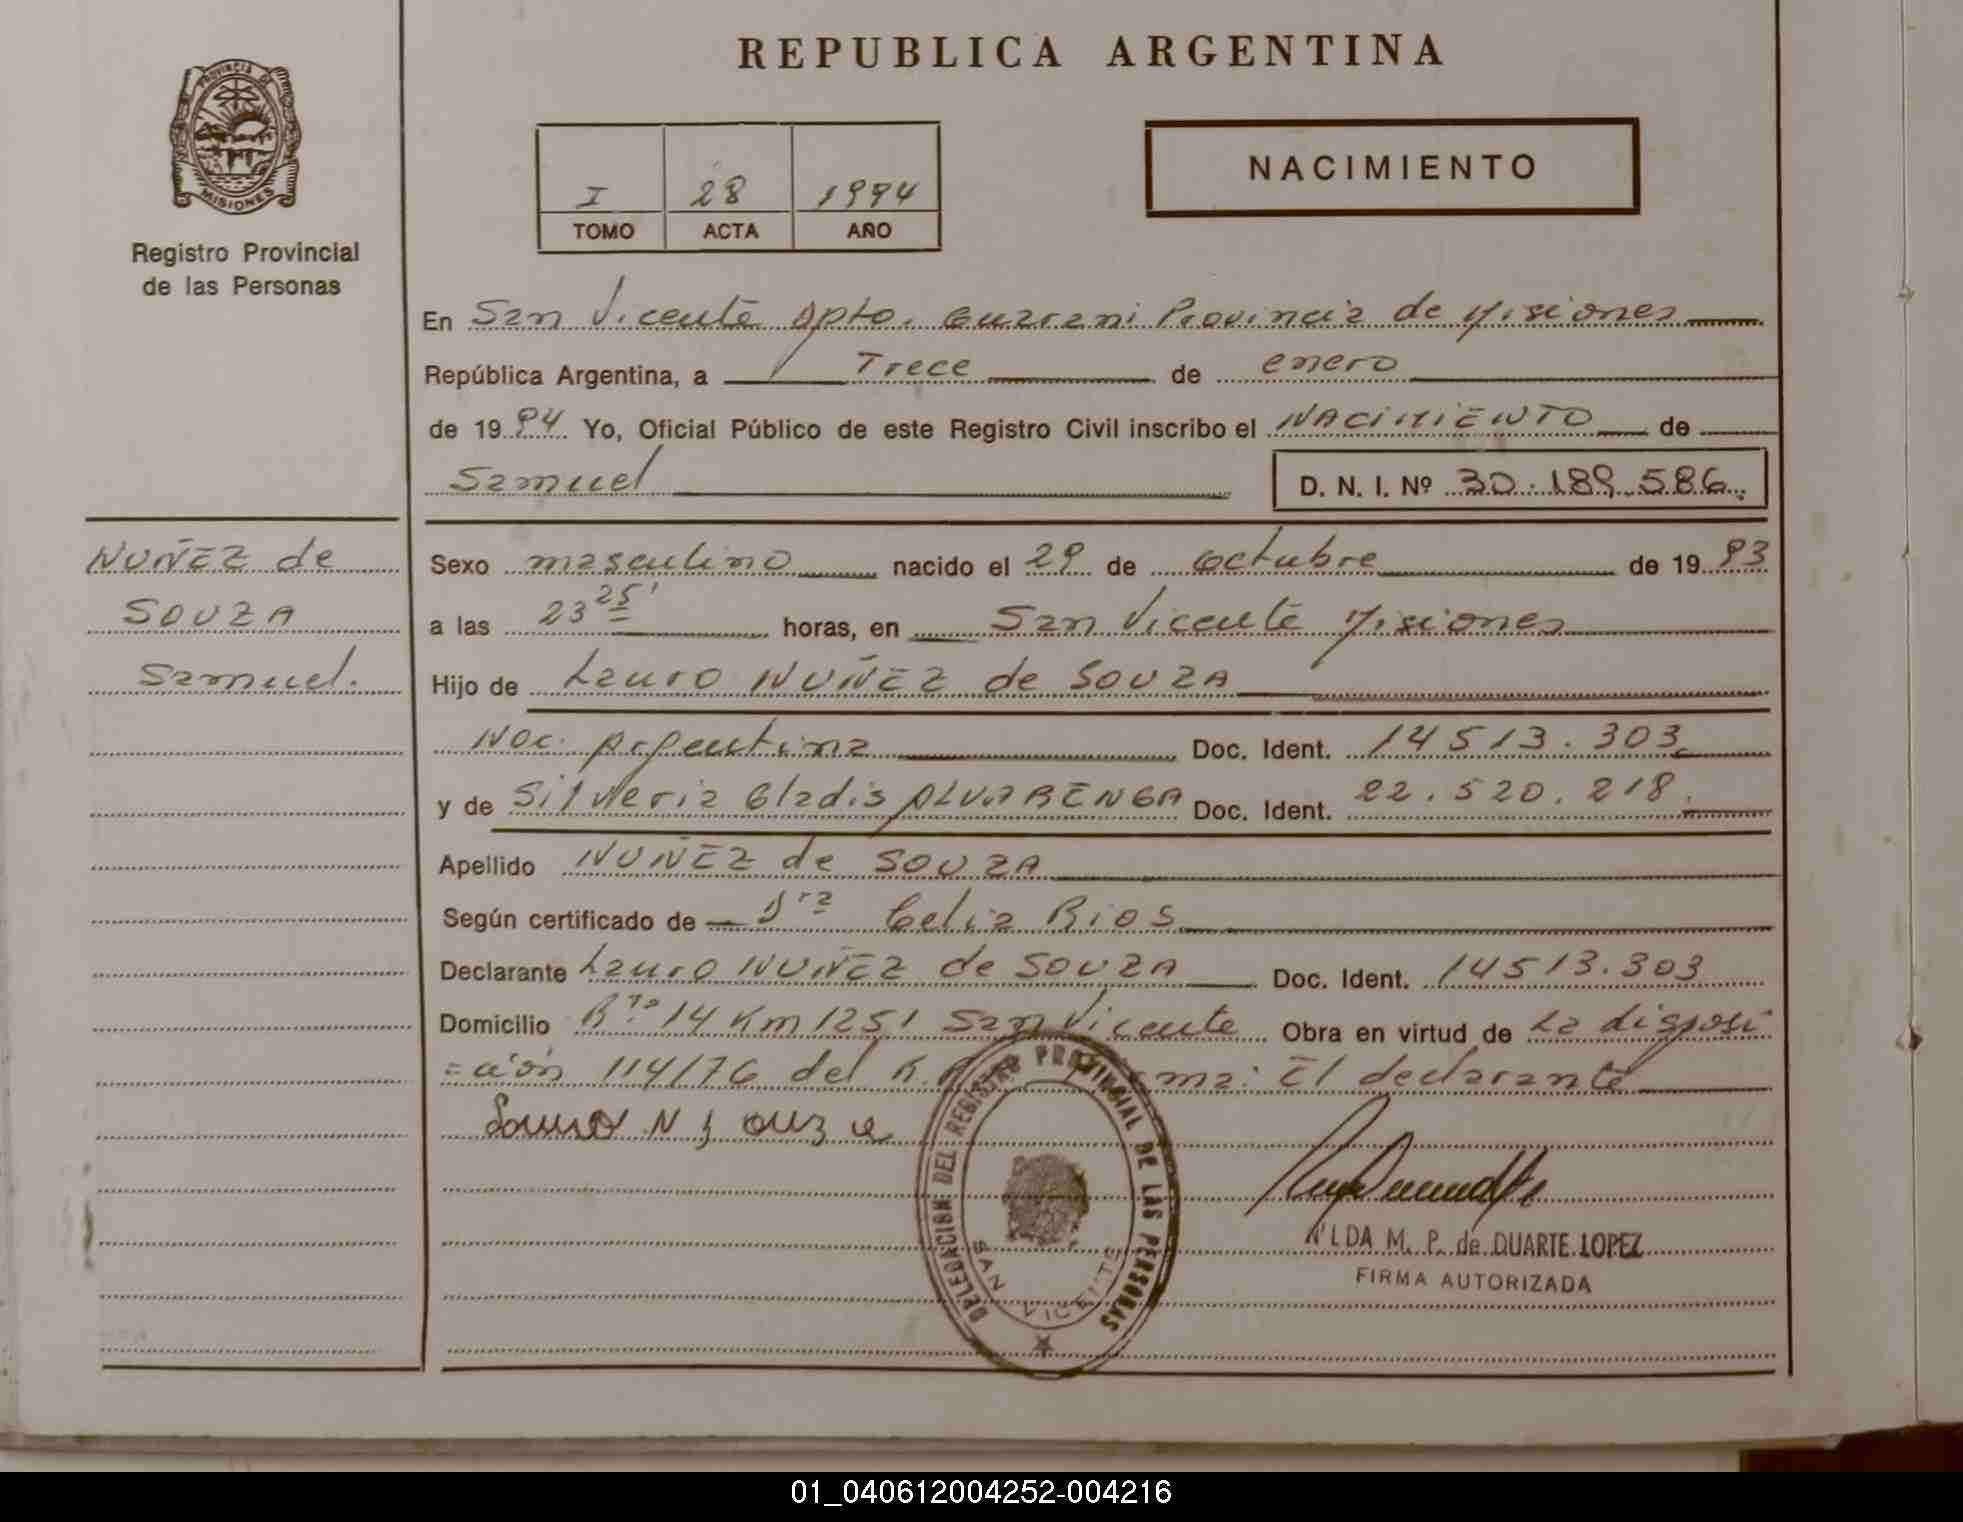 REPUBLICA ARGENTINA
PROVINCIA DE
MISIONES
Registro Provincial
de las Personas
I 28 1994
TOMO ACTA AÑO
NACIMIENTO
En San Vicente Dpto. Guarani Provincia de Misiones
República Argentina, a Trece de enero
de 1994 Yo, Oficial Público de este Registro Civil inscribo el NACIMIENTO de
Samuel D. N. I. Nº 30.189.586.
NUÑEZ de
SOUZA
Samuel.
Sexo masculino nacido el 29 de octubre de 1993
a las 23 25' horas, en San Vicente Misiones
Hijo de Lauro NUÑEZ de SOUZA
Nac. Argentina Doc. Ident. 14513.303
y de Silveria Gladis ALVARENGA Doc. Ident. 22.520.218.
Apellido NUÑEZ de SOUZA
Según certificado de Dra Celia Rios
Declarante Lauro NUÑEZ de SOUZA Doc. Ident. 14513.303
Domicilio Rta 14 Km 1251 San Vicente Obra en virtud de La disposi
=ción 114/76 del El declarante
DELEGACION DEL REGISTRO PROVINCIAL DE LAS PERSONAS
SAN VICENTE
M. P. de DUARTE LOPEZ
FIRMA AUTORIZADA
01_040612004252-004216